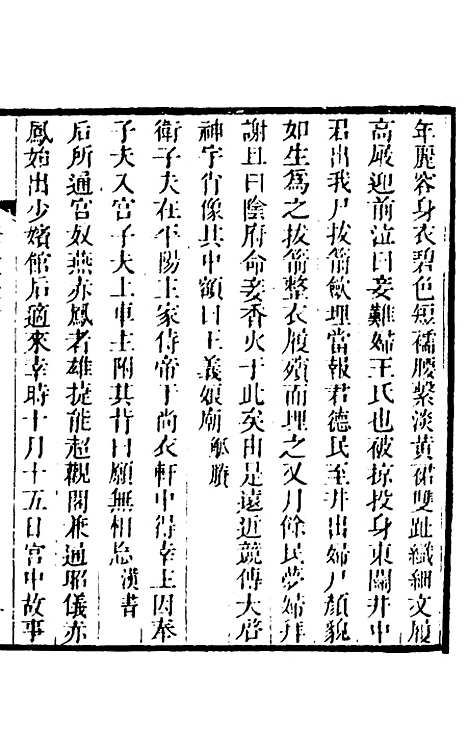 年麗容身衣碧色短襦腰繫淡黃裙雙趾纖細文履
高嚴迎前泣曰妾難婦王氏也被掠投身東關井中
君出我尸拔箭斂埋當報君德民至井出婦尸顏貌
如生爲之拔箭整衣履殯而埋之又月餘民夢婦拜
謝且曰陰府命妾香火于此矣由是遠近競傳大啓
神宇肖像其中額曰王義娘廟觚賸
衛子夫在平陽主家侍帝于尚衣軒中得幸主因奉
子夫入宮子夫上車主拊其背曰願無相忘漢書
后所通宮奴燕赤鳳者雄捷能超觀閣兼通昭儀赤
鳳始出少嬪館后適來幸時十月十五日宮中故事